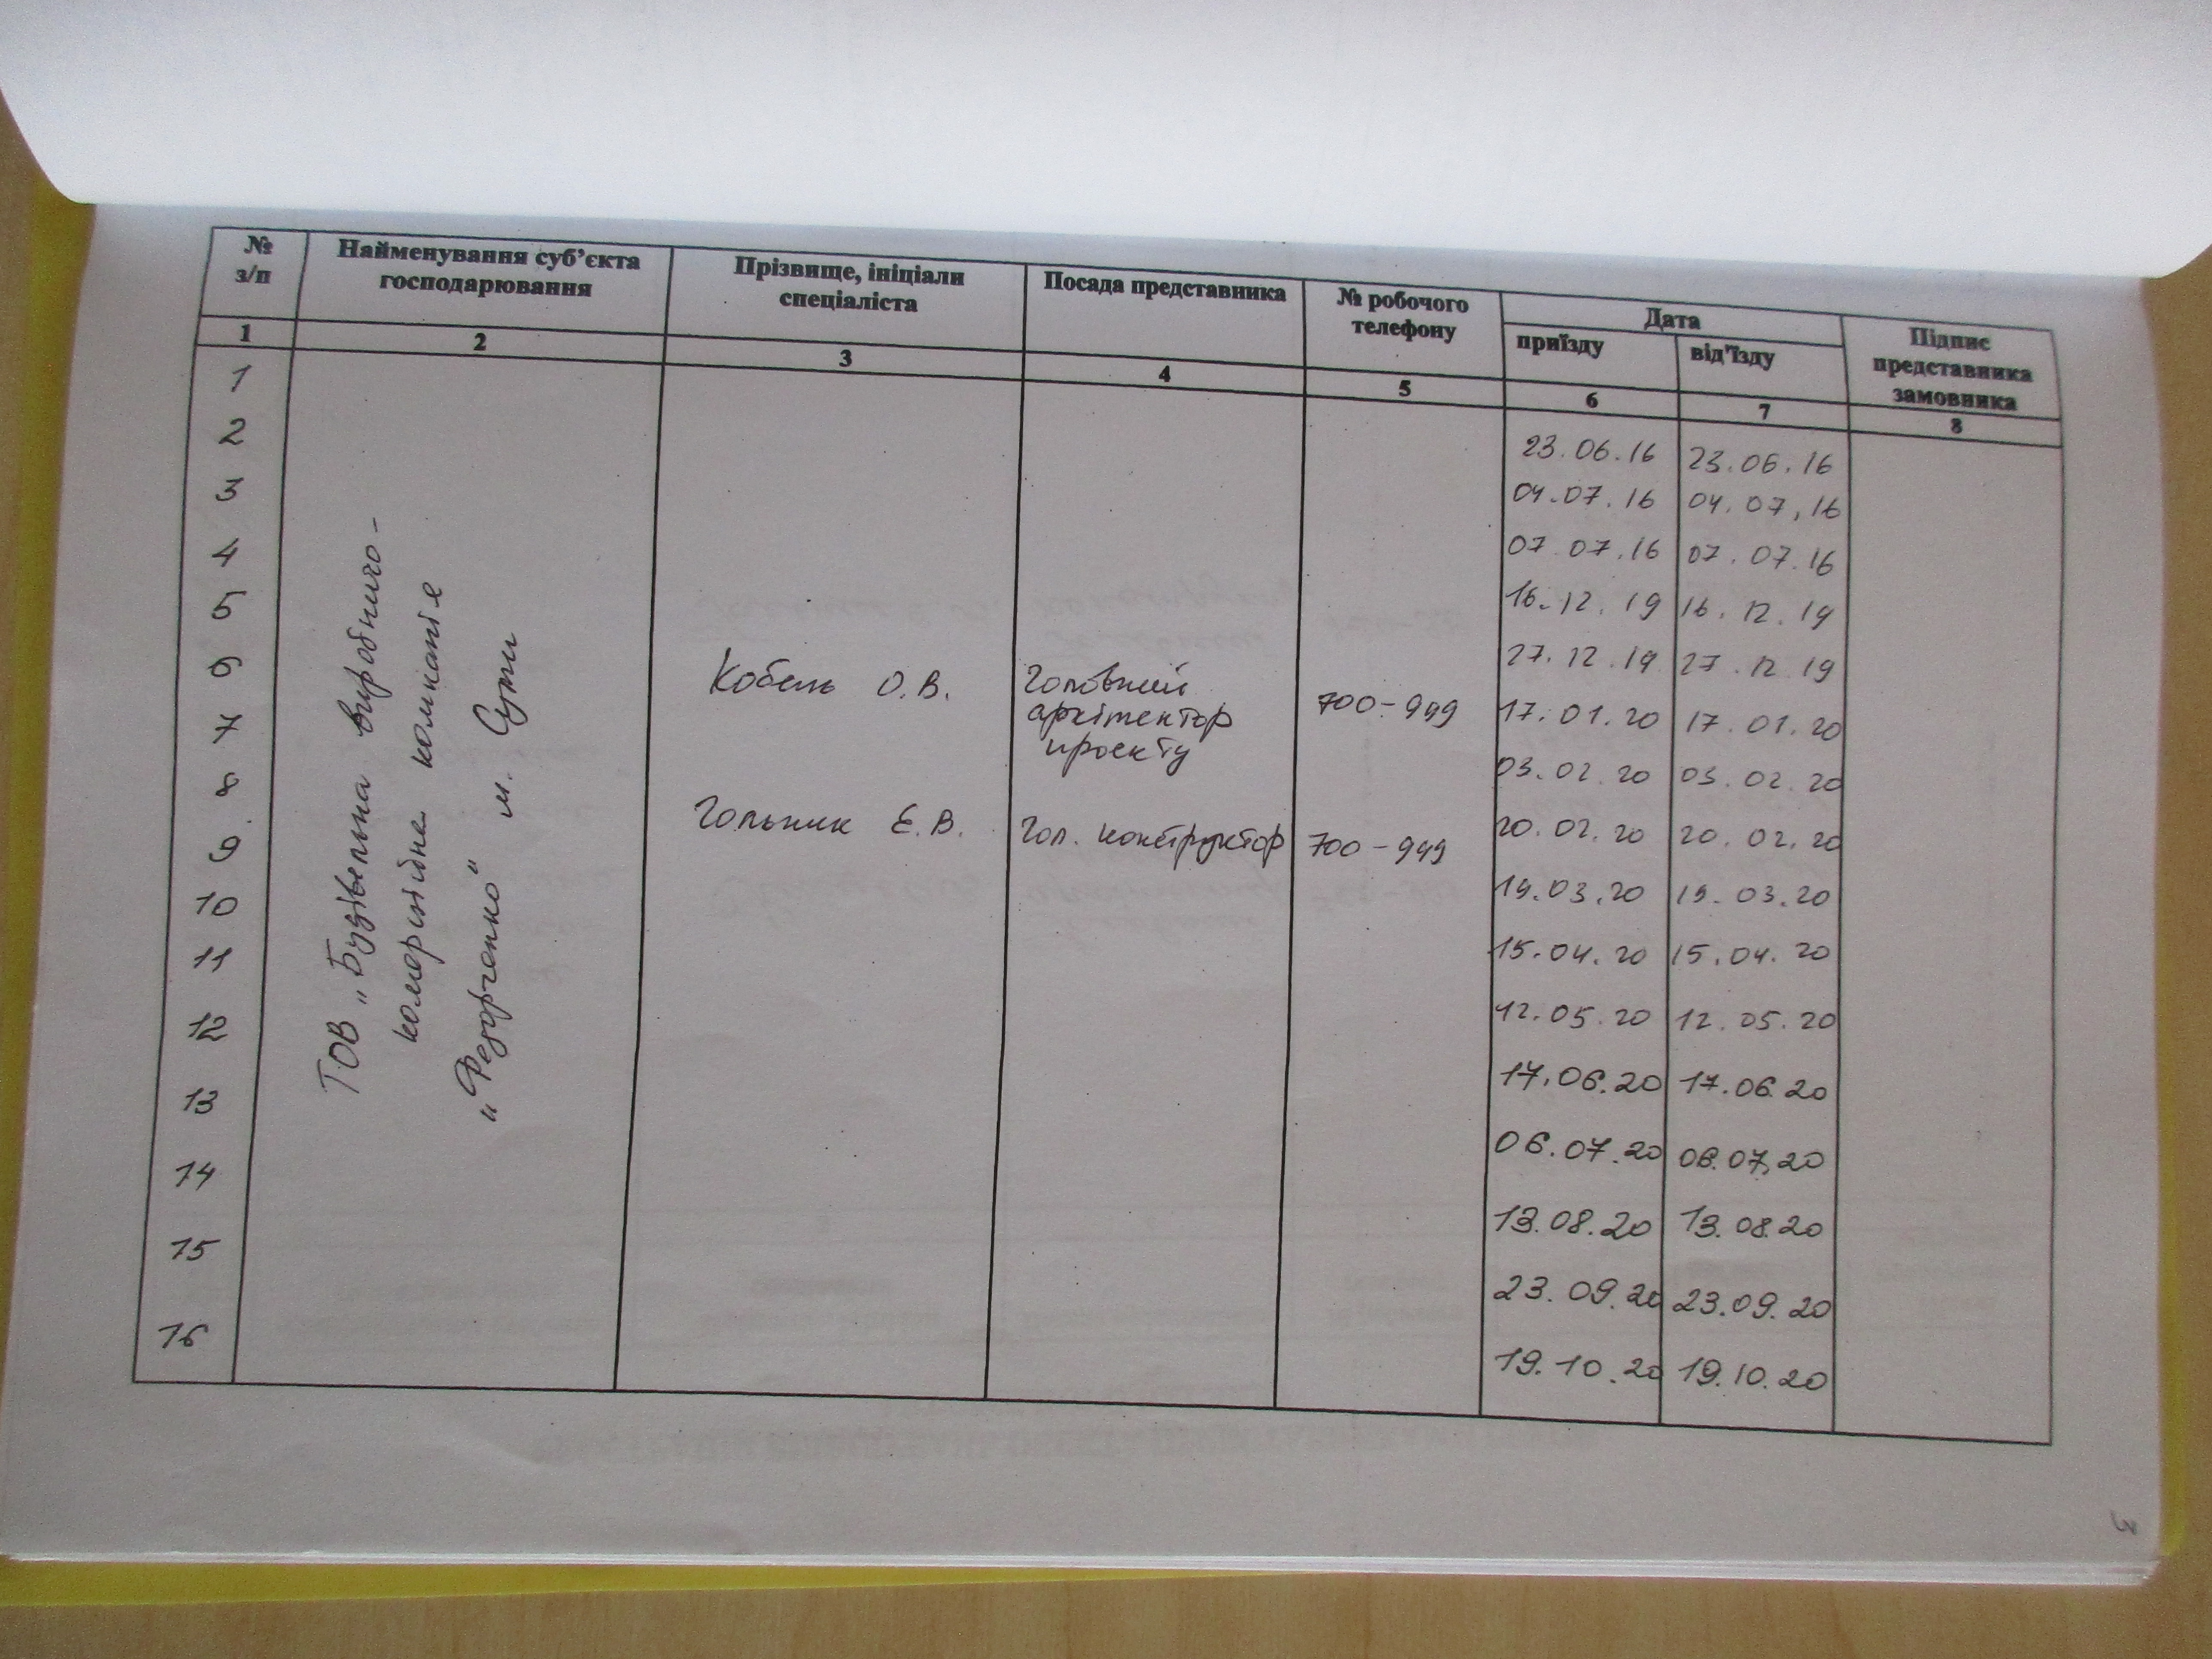 № з/п
Найменування суб’єкта господарювання
Прізвище, ініціали спеціаліста
Посада представника
№ робочого телефону
Дата
приїзду
від’їзду
Підпис представника замовника
1 2 3 4 5 6 7 8
1
2
3
4
5
6
7
8
9
10
11
12
13
14
15
16
ТОВ „Будівельна виробничо-
комерційна компанія
„Федорченко" м. Суми
Кобель О.В.
Головний
архітектор
проекту
700-949
Гольник Є.В.
Гол. конструктор
700-949
23.06.16 23.06.16
04.07.16 04.07.16
07.07.16 07.07.16
16.12.19 16.12.19
27.12.19 27.12.19
17.01.20 17.01.20
03.02.20 03.02.20
20.02.20 20.02.20
19.03.20 19.03.20
15.04.20 15.04.20
12.05.20 12.05.20
17.06.20 17.06.20
06.07.20 06.07.20
13.08.20 13.08.20
23.09.20 23.09.20
19.10.20 19.10.20